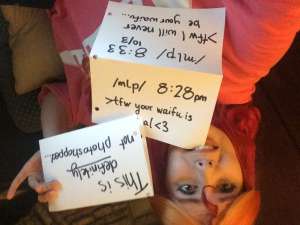 >tfw I will never
be your waifu...
/mlp/ 8:33
10/3
/mlp/ 8:28pm
>tfw your waifu is
a/ <3
This is
definitely
not photoshopped...